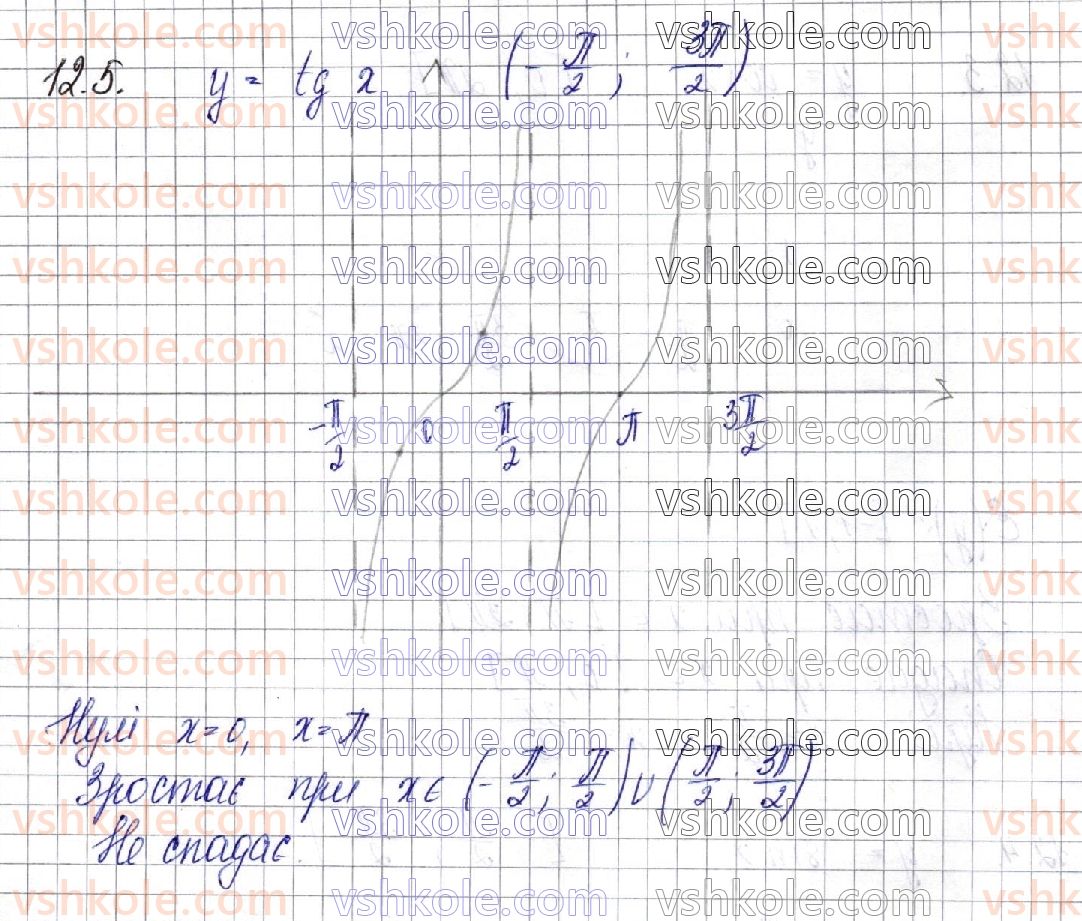 12.5. y = tg x (-π/2; 3π/2)
-π/2 0 π/2 π 3π/2
Нулі x=0, x=π
Зростає при x∈(-π/2; π/2)∪(π/2; 3π/2)
Не спадає.
vshkole.com